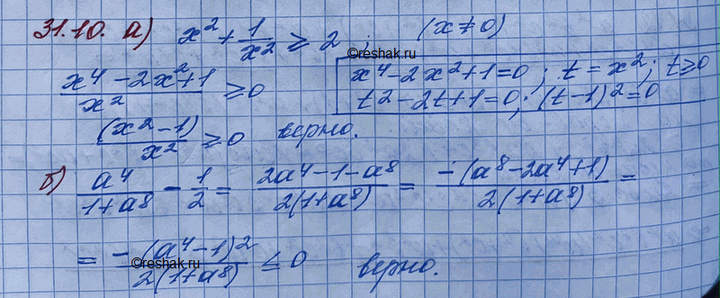 31.10. а) x² + 1/x² ≥ 2 ; (x ≠ 0)
©reshak.ru
(x⁴ - 2x² + 1)/x² ≥ 0
x⁴ - 2x² + 1 = 0 ; t = x² ; t ≥ 0
t² - 2t + 1 = 0 ; (t - 1)² = 0
(x² - 1)/x² ≥ 0 верно.
б) a⁴/(1 + a⁸) - 1/2 = (2a⁴ - 1 - a⁸)/(2(1 + a⁸)) = -(a⁸ - 2a⁴ + 1)/(2(1 + a⁸)) =
= -(a⁴ - 1)²/(2(1 + a⁸)) ≤ 0 верно.
©reshak.ru